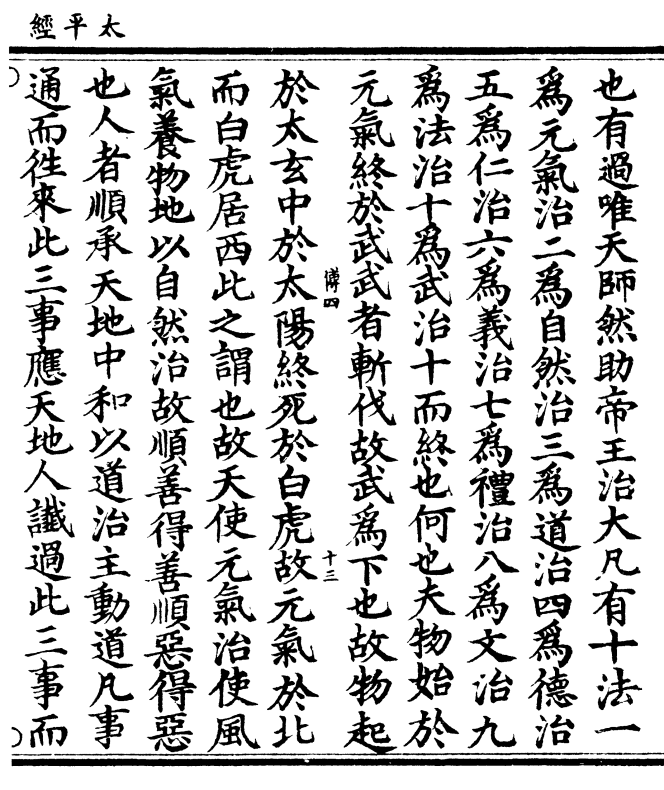 太平經
也有過唯天師然助帝王治大凡有十法一
爲元氣治二爲自然治三爲道治四爲德治
五爲仁治六爲義治七爲禮治八爲文治九
爲法治十爲武治十而終也何也夫物始於
元氣終於武武者斬伐故武爲下也故物起
傅四
十三
於太玄中於太陽終死於白虎故元氣於北
而白虎居西此之謂也故天使元氣治使風
氣養物地以自然治故順善得善順惡得惡
也人者順承天地中和以道治主動道凡事
通而徃來此三事應天地人讖過此三事而